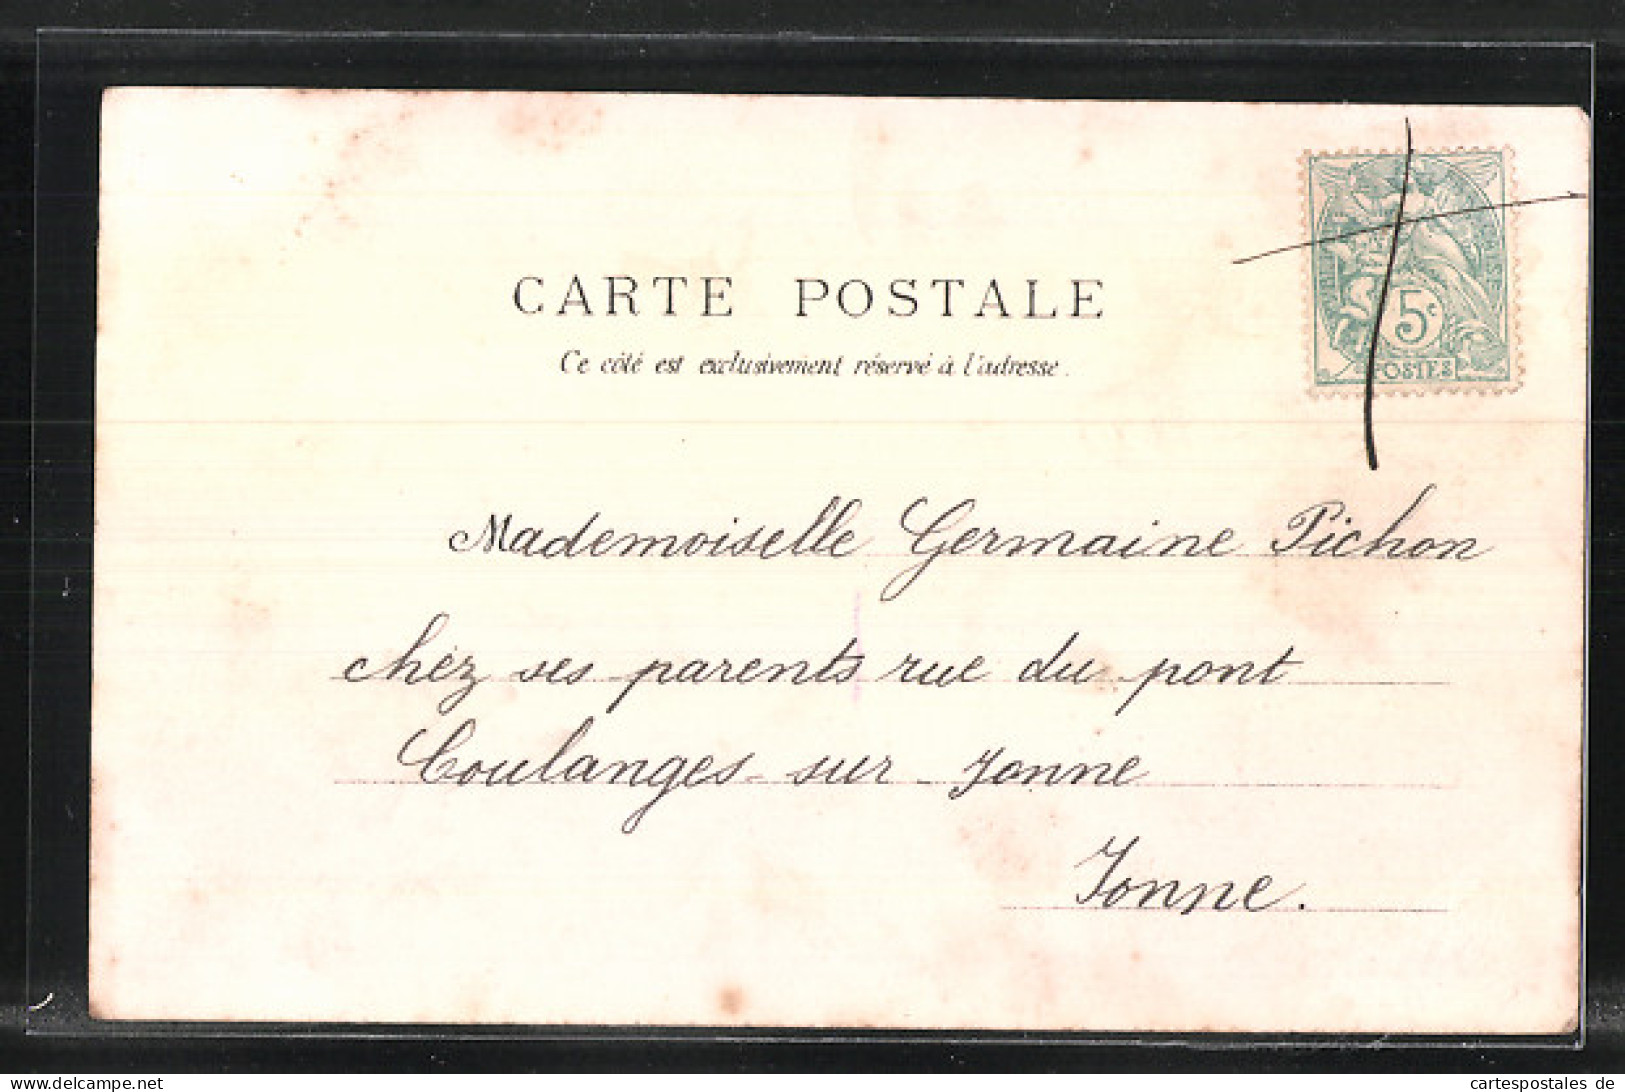 CARTE POSTALE
Ce côté est exclusivement réservé à l'adresse.
5c
POSTES
Mademoiselle Germaine Pichon
chez ses parents rue du pont
Coulanges-sur-Yonne
Yonne.
www.cartespostales.de
cartespostales de